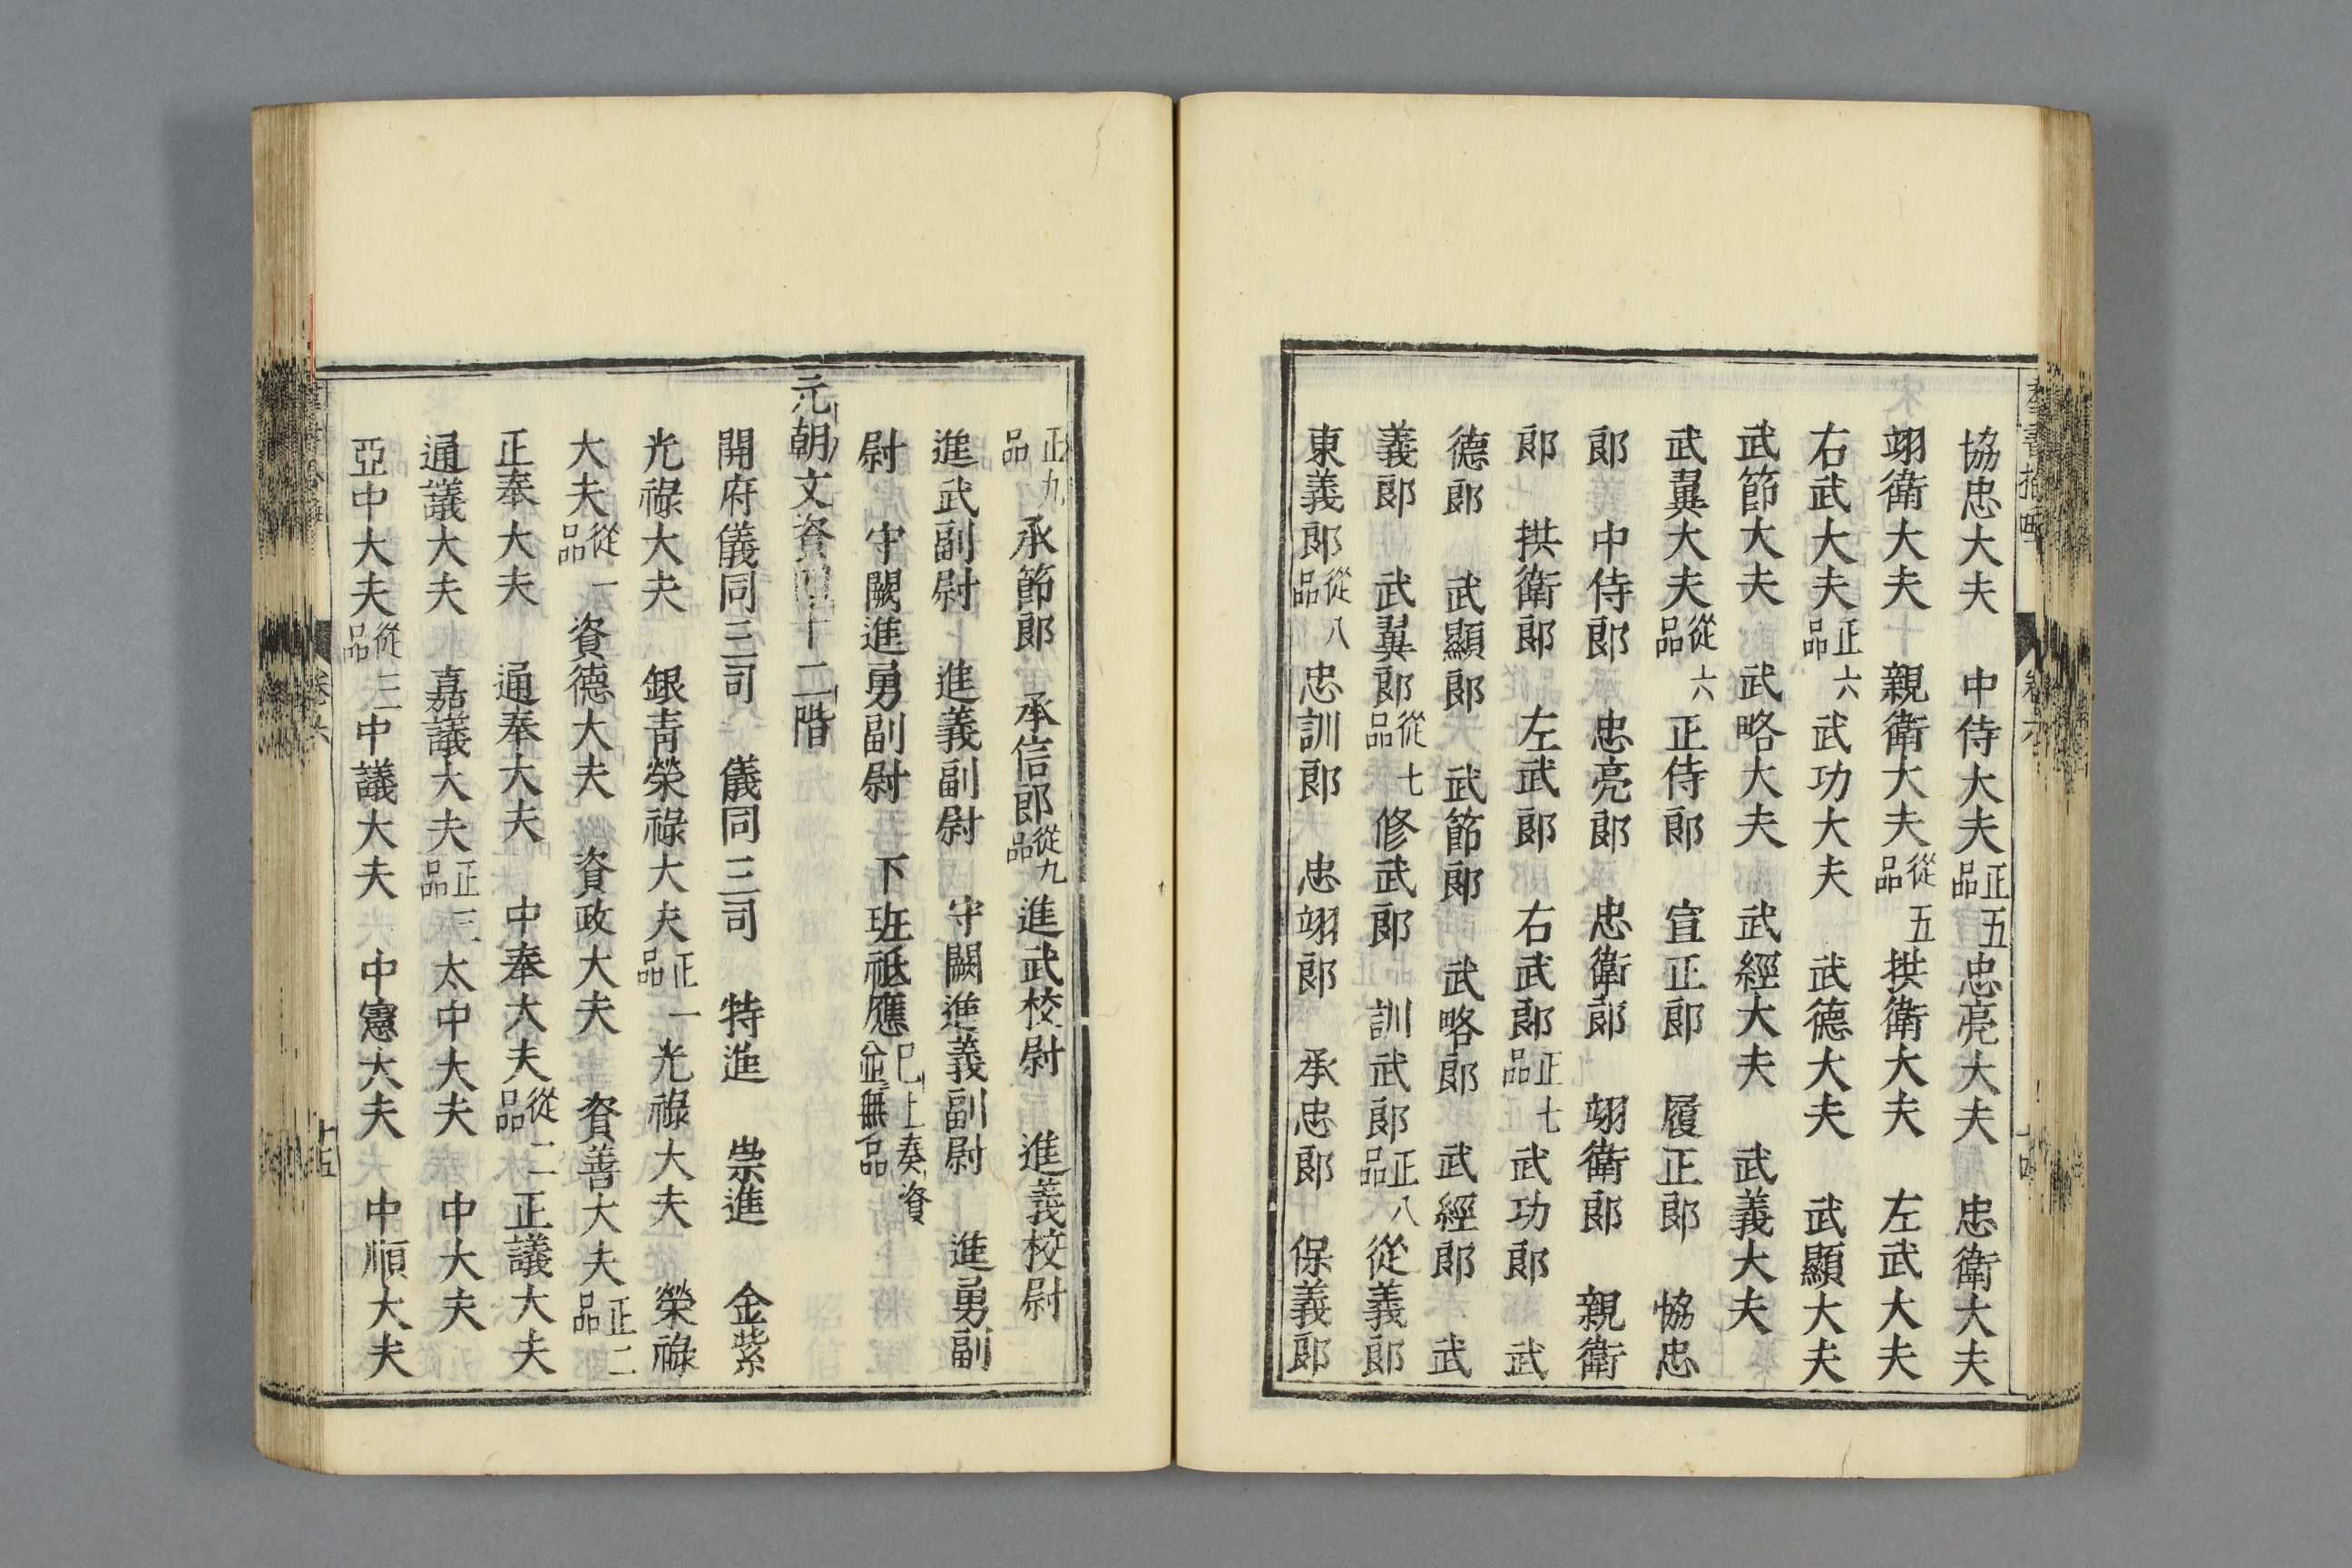 協忠大夫　中侍大夫正五品忠亮大夫　忠衛大夫
翊衛大夫　親衛大夫從五品拱衛大夫　左武大夫
右武大夫正六品武功大夫　武德大夫　武顯大夫
武節大夫　武略大夫　武經大夫　武義大夫
武翼大夫從六品正侍郎　宣正郎　履正郎　恊忠
郎　中侍郎　忠亮郎　忠衛郎　翊衛郎　親衛
郎　拱衛郎　左武郎　右武郎正七品武功郎　武
德郎　武顯郎　武節郎　武略郎　武經郎　武
義郎　武翼郎從七品修武郎　訓武郎正八品從義郎
東義郎從八品忠訓郎　忠翊郎　承忠郎　保義郎
正九品承節郎　承信郎從九品進武校尉　進義校尉
進武副尉　進義副尉　守闕進義副尉　進勇副
尉　守闕進勇副尉　下班祗應已上奏資並無品
元朝文資四十二階
開府儀同三司　儀同三司　特進　崇進　金紫
光祿大夫　銀青榮祿大夫正一品光祿大夫　榮祿
大夫從一品資德大夫　資政大夫　資善大夫正二品
正奉大夫　通奉大夫　中奉大夫從二品正議大夫
通議大夫　嘉議大夫正三品太中大夫　中大夫
亞中大夫從三品中議大夫　中憲大夫　中順大夫
卷六
十五